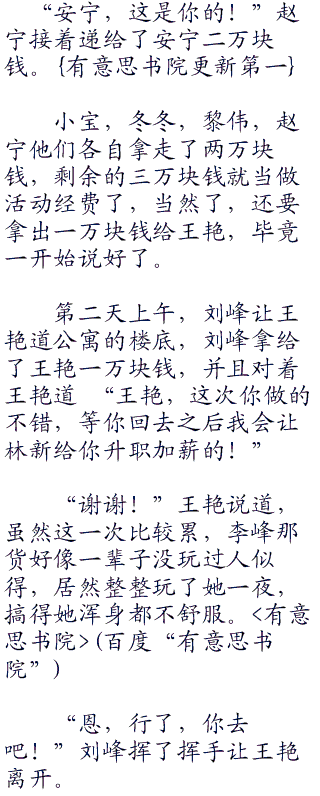 “安宁，这是你的！”赵
宁接着递给了安宁二万块
钱。{有意思书院更新第一}
小宝，冬冬，黎伟，赵
宁他们各自拿走了两万块
钱，剩余的三万块钱就当做
活动经费了，当然了，还要
拿出一万块钱给王艳，毕竟
一开始说好了。
第二天上午，刘峰让王
艳道公寓的楼底，刘峰拿给
了王艳一万块钱，并且对着
王艳道 “王艳，这次你做的
不错，等你回去之后我会让
林新给你升职加薪的！”
“谢谢！”王艳说道，
虽然这一次比较累，李峰那
货好像一辈子没玩过人似
得，居然整整玩了她一夜，
搞得她浑身都不舒服。<有意
思书院>(百度“有意思书
院”)
“恩，行了，你去
吧！”刘峰挥了挥手让王艳
离开。